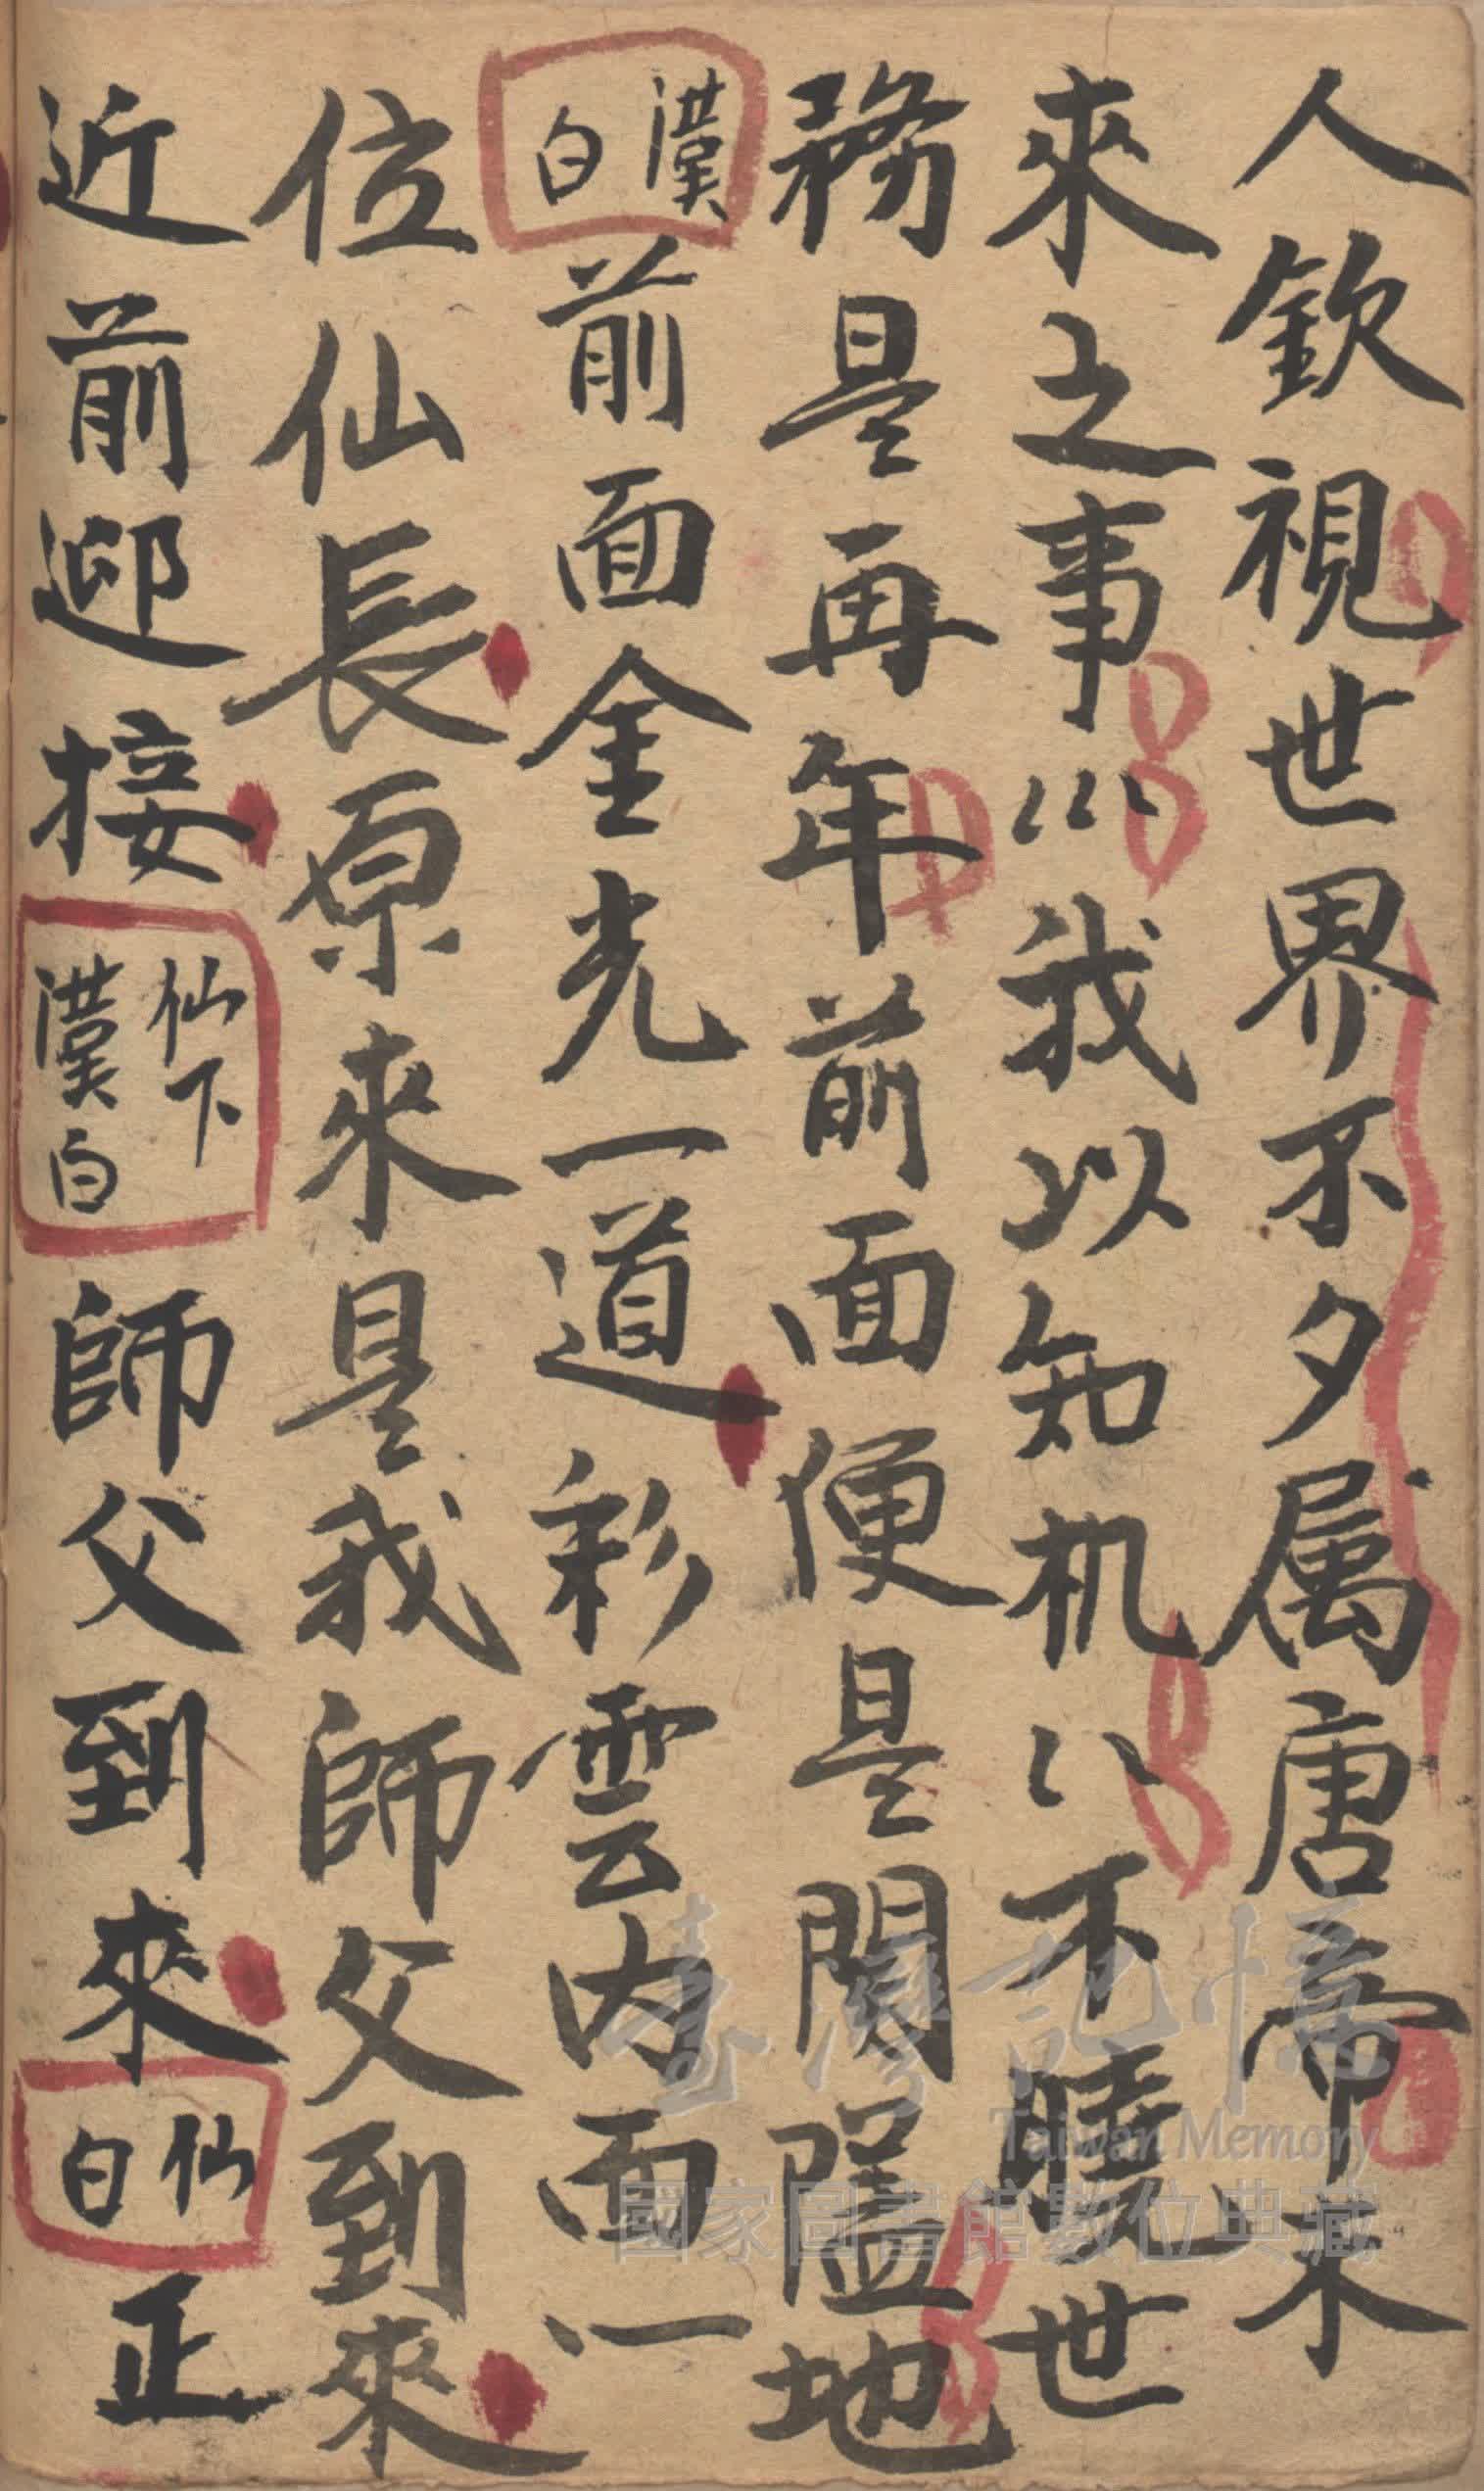 人欽視世界不夕属唐帝未
來之事〻我以知机〻不曉世
務是再年前面便是関隘地
漢白 前面金光一道彩雲内面一
位仙長原來是我師父到來
近前迎接 仙下漢白 師父到來 仙白 正
臺灣記憶
Taiwan Memory
國家圖書館數位典藏